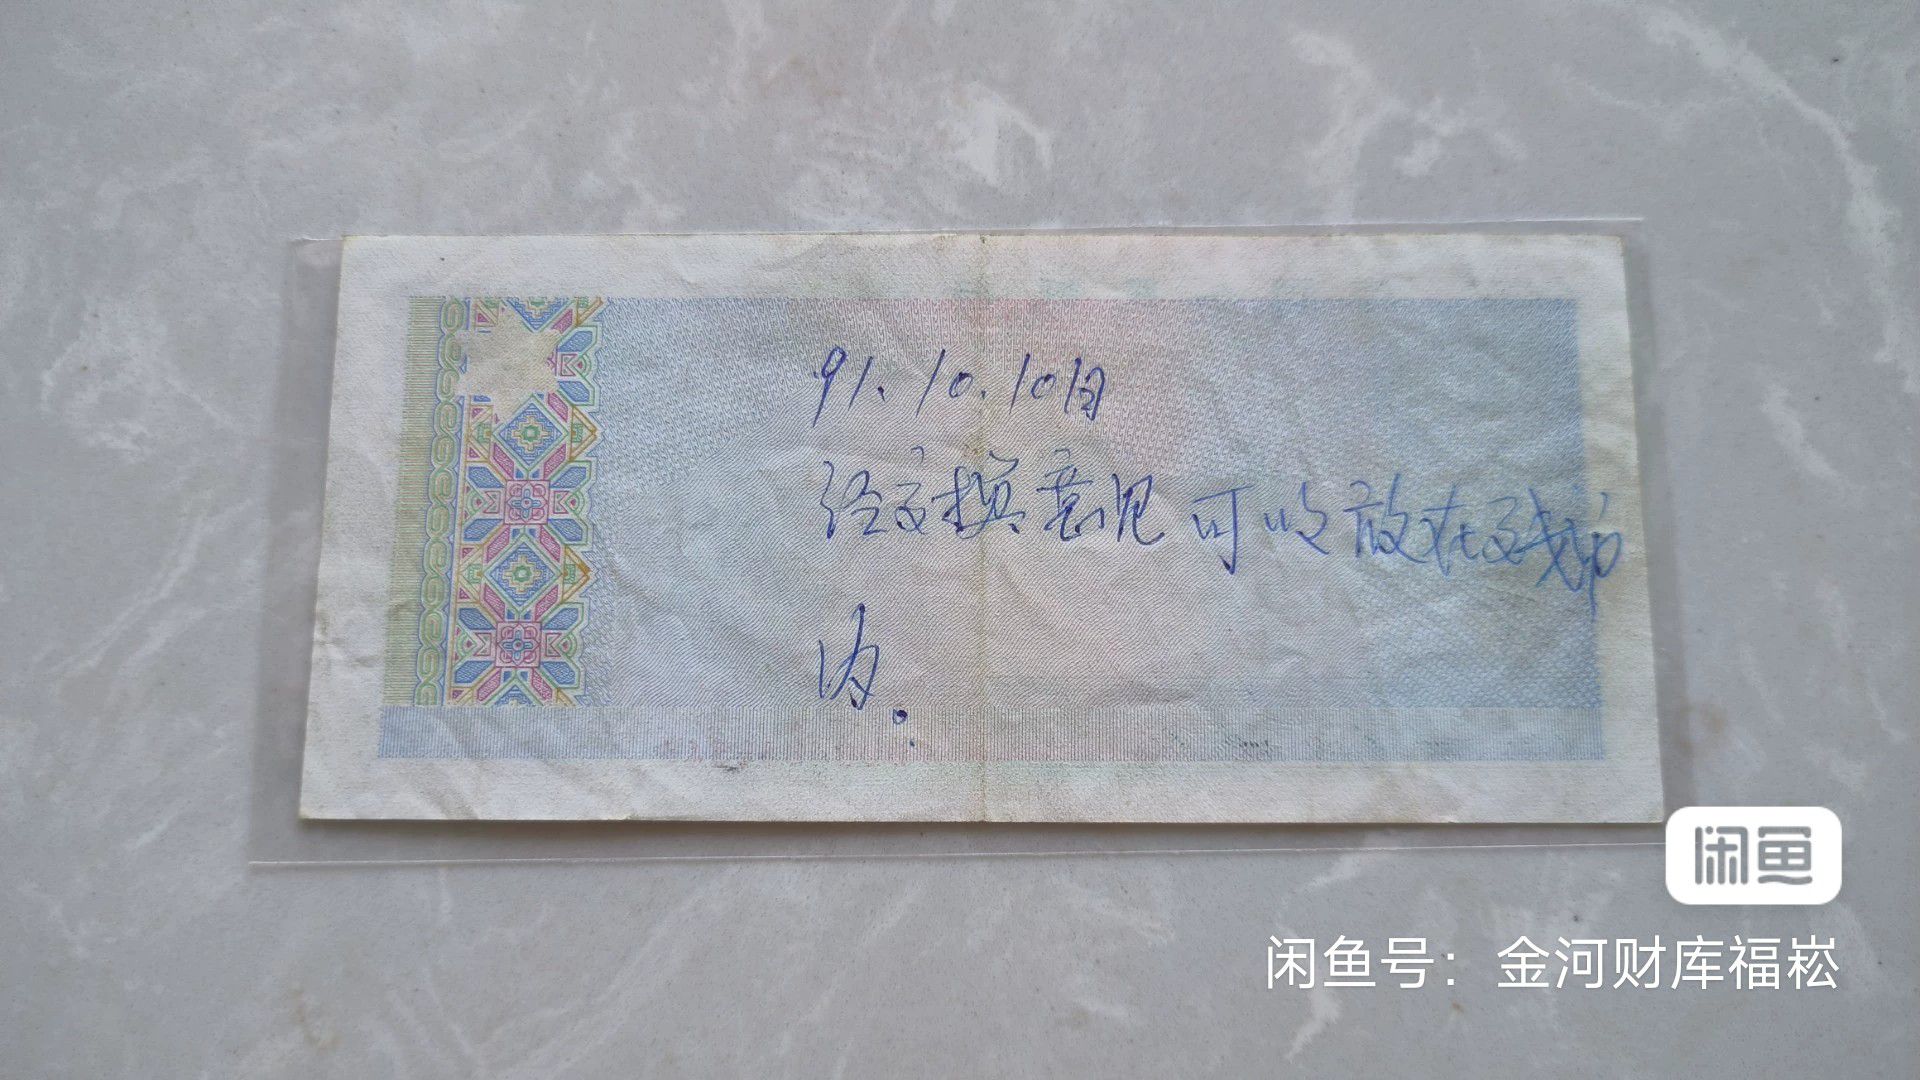 91.10.10日
经交换意见可收放在残币
内.
闲鱼
闲鱼号：金河财库福崧